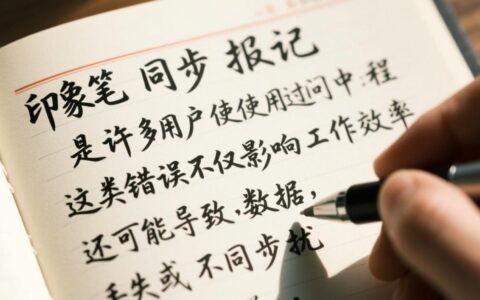 印象笔 同步 报记
是许多用户使使用过问中:程
这类错误不仅影响工作效率
还可能导致,数据,
丢失或 不同步扰